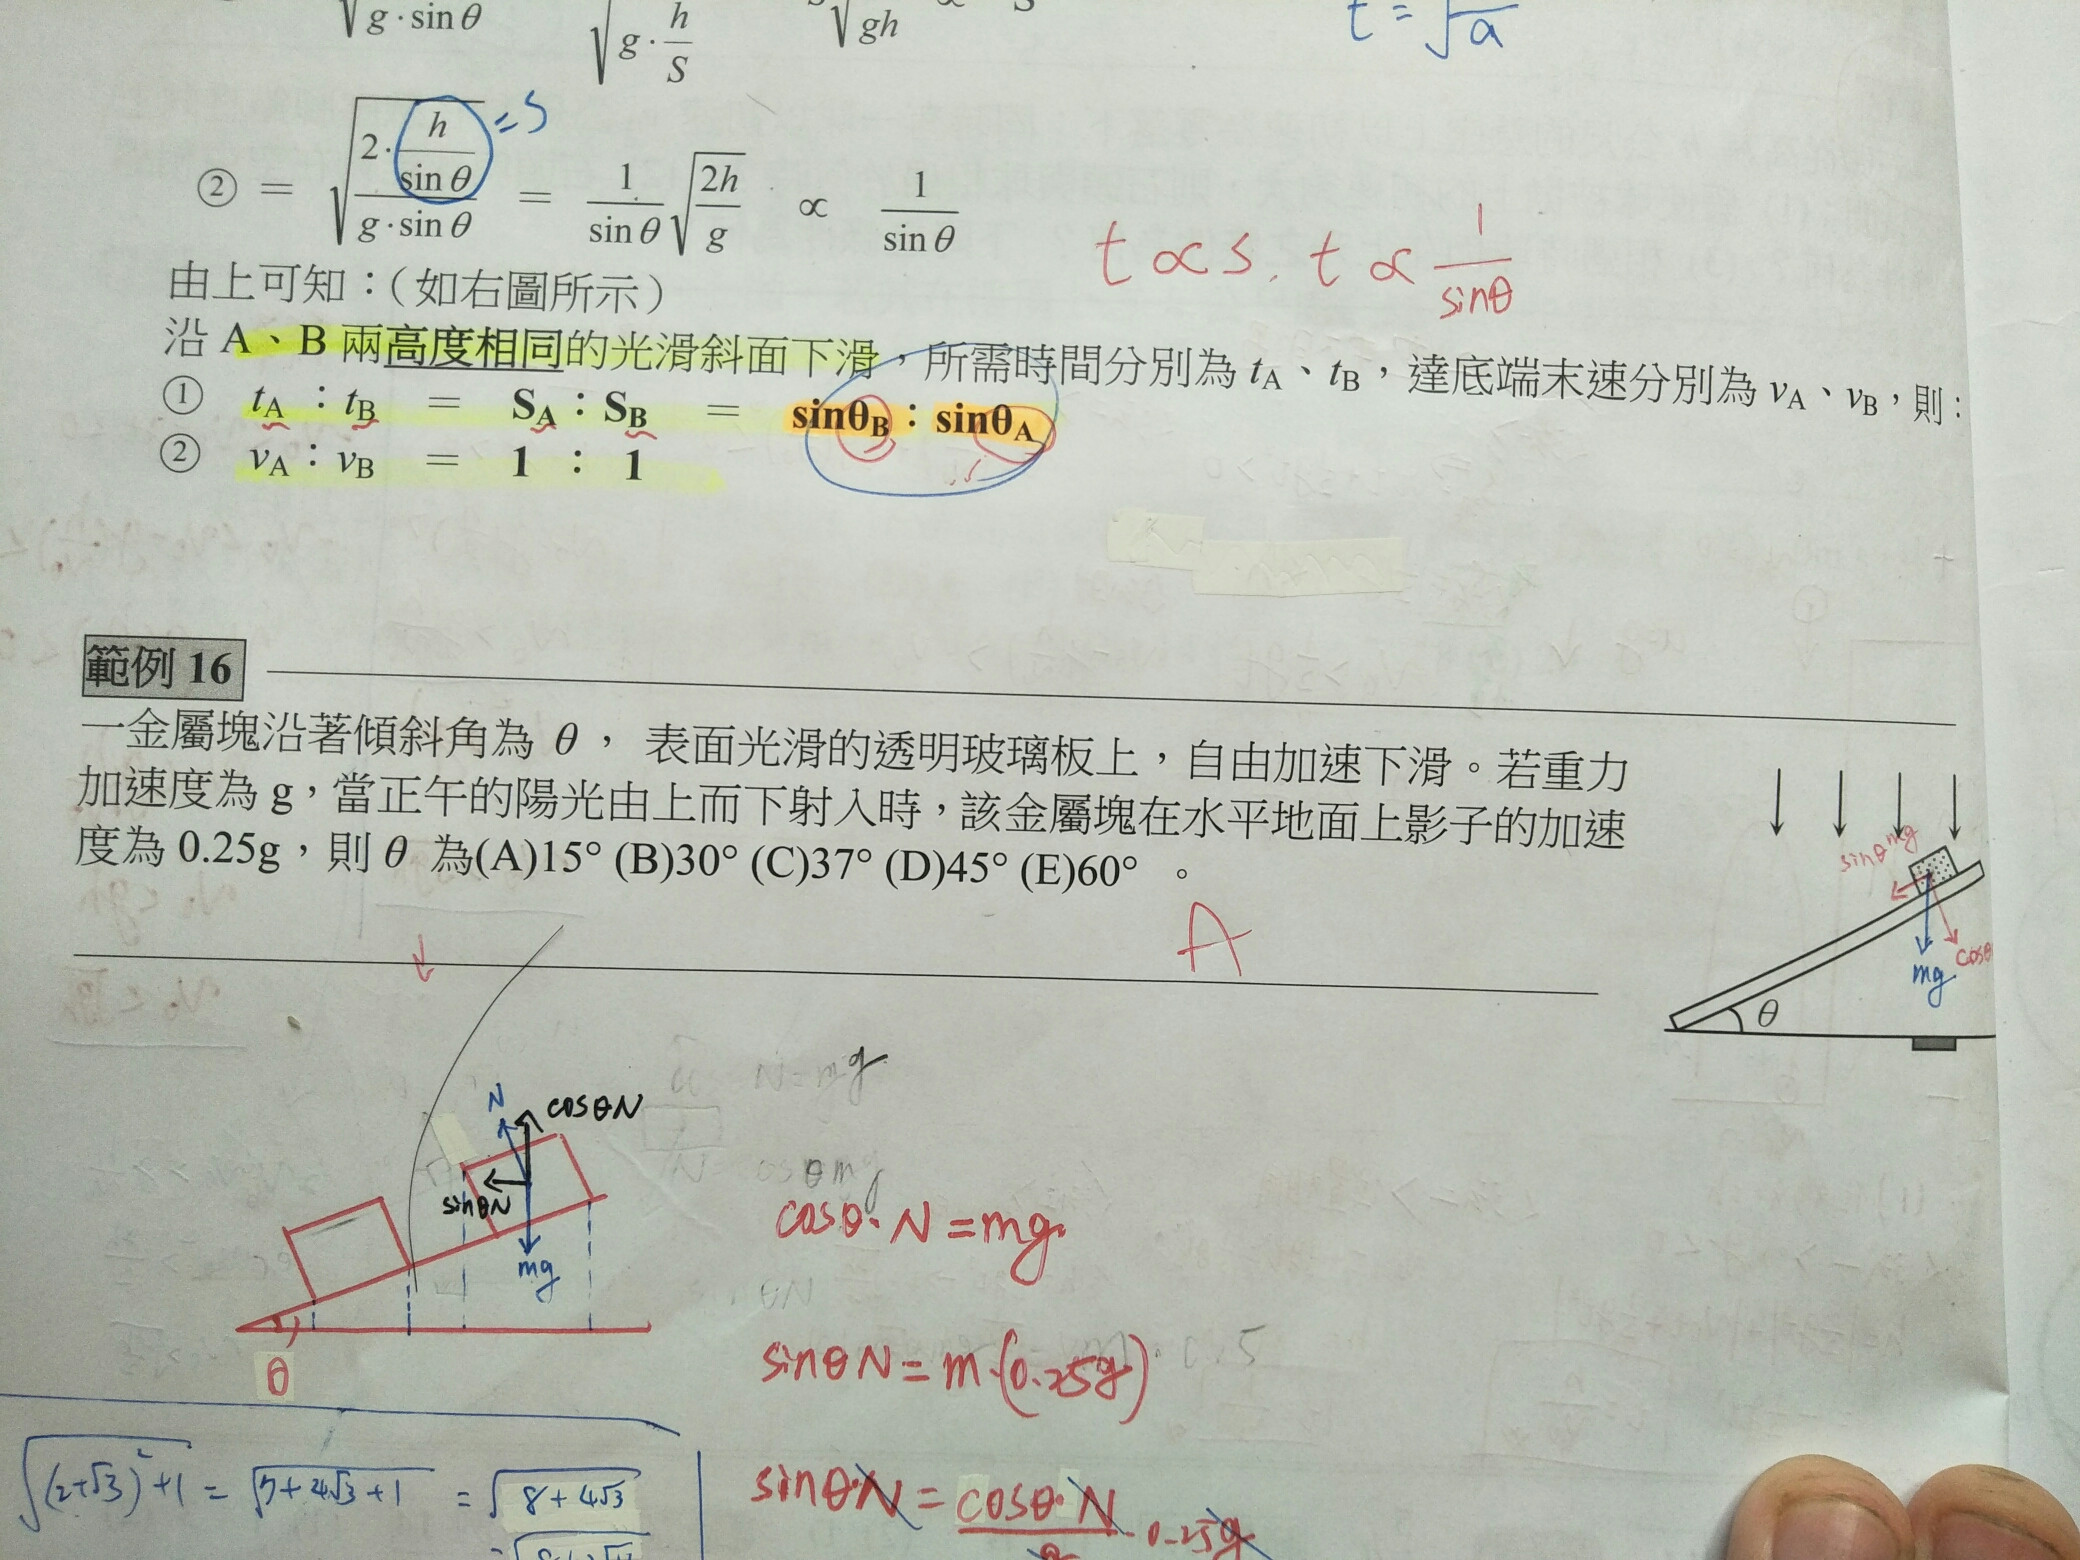 √g·sinθ √g·h/S √gh ∝ S t=√a
② = √(2·h/sinθ)/(g·sinθ) = 1/sinθ √2h/g ∝ 1/sinθ
=S
t∝S, t∝1/sinθ
由上可知：（如右圖所示）
沿 A、B 兩高度相同的光滑斜面下滑，所需時間分別為 tA、tB，達底端末速分別為 vA、vB，則：
① tA：tB = SA：SB = sinθB：sinθA
② vA：vB = 1 ： 1
範例 16
一金屬塊沿著傾斜角為 θ， 表面光滑的透明玻璃板上，自由加速下滑。若重力
加速度為 g，當正午的陽光由上而下射入時，該金屬塊在水平地面上影子的加速
度為 0.25g，則 θ 為(A)15° (B)30° (C)37° (D)45° (E)60° 。
A
sinθmg
cosθ
mg
θ
N=mg
N
cosθN
sinθN
mg
θ
cosθ·N=mg
sinθN=m·(0.25g)
sinθN=cosθ·N/g·0.25g
√(2+√3)²+1 = √7+4√3+1 = √8+4√3